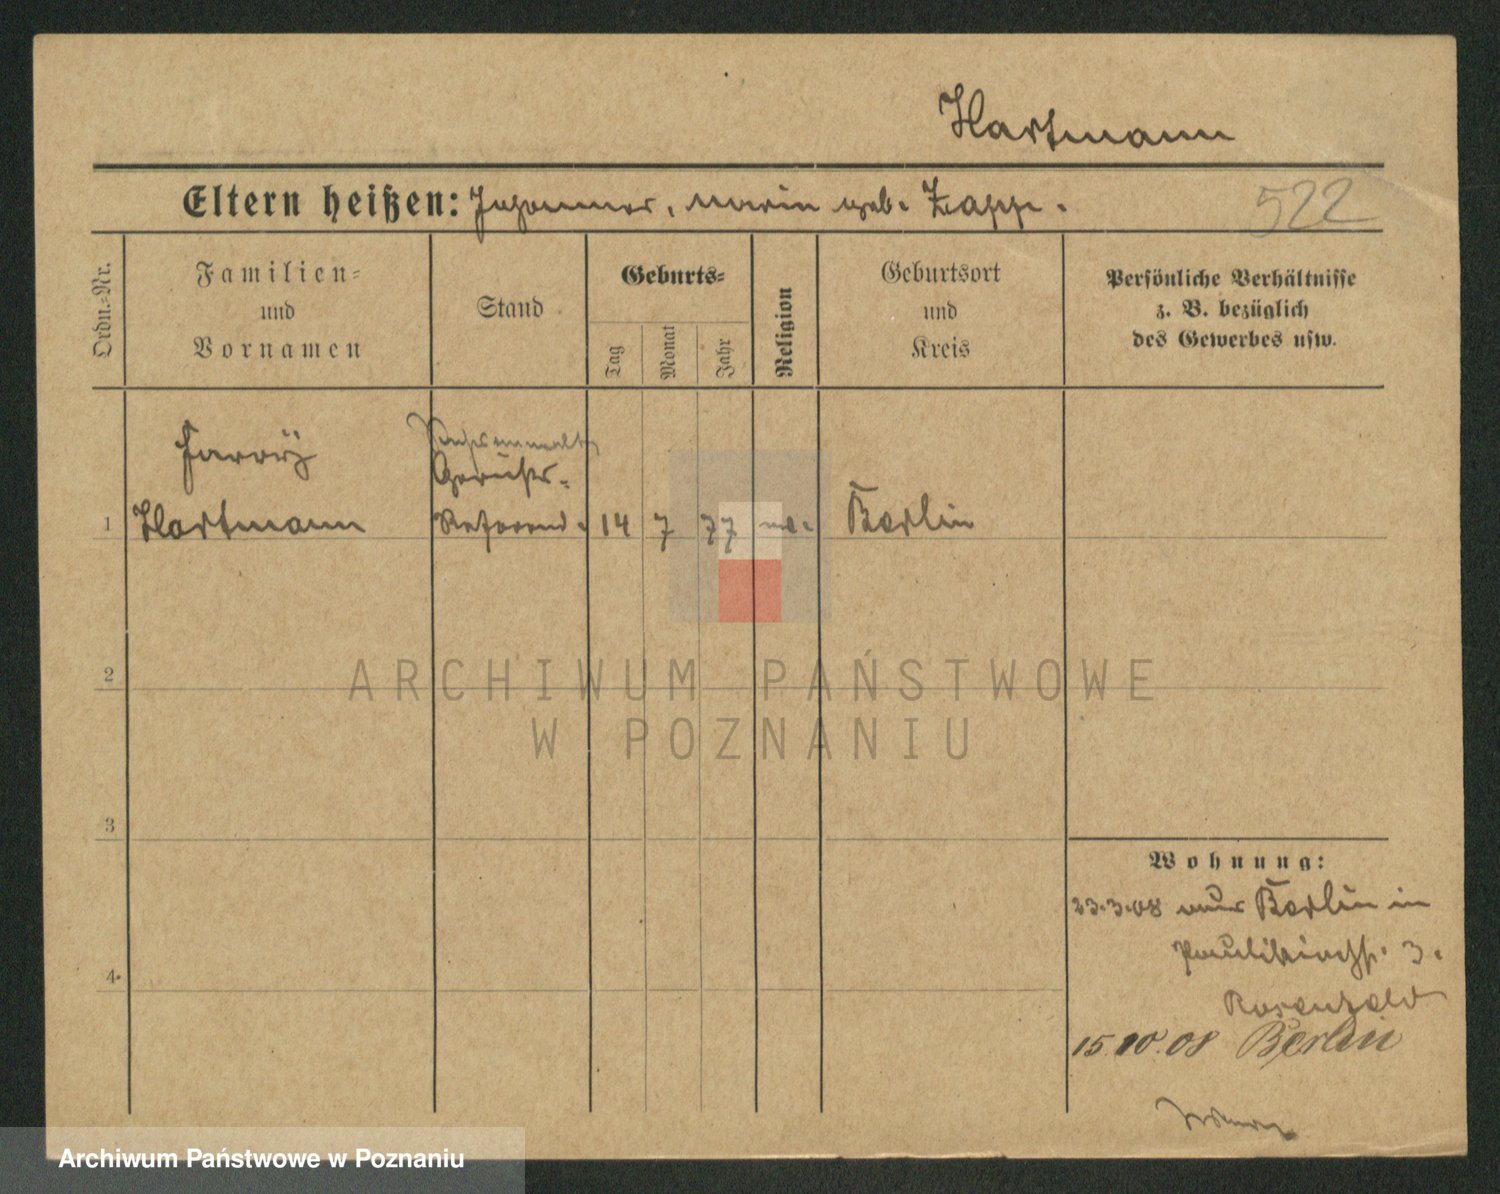 Hartmann
Eltern heißen: Johannes, Maria geb. Zapp.
522
Ordn.-Nr.
Familien-
und
Vornamen
Stand
Geburts-
Tag
Monat
Jahr
Religion
Geburtsort
und
Kreis
Persönliche Verhältnisse
z. B. bezüglich
des Gewerbes usw.
Rechtsanwalt
Gerichts-
1 Hartmann Referend. 14 7 77 Berlin
2
3
4
Wohnung:
23.3.08 aus Berlin in
Paulikirchstr. 3.
Rosenfeld
15.10.08 Berlin
ARCHIWUM PAŃSTWOWE
W POZNANIU
Archiwum Państwowe w Poznaniu